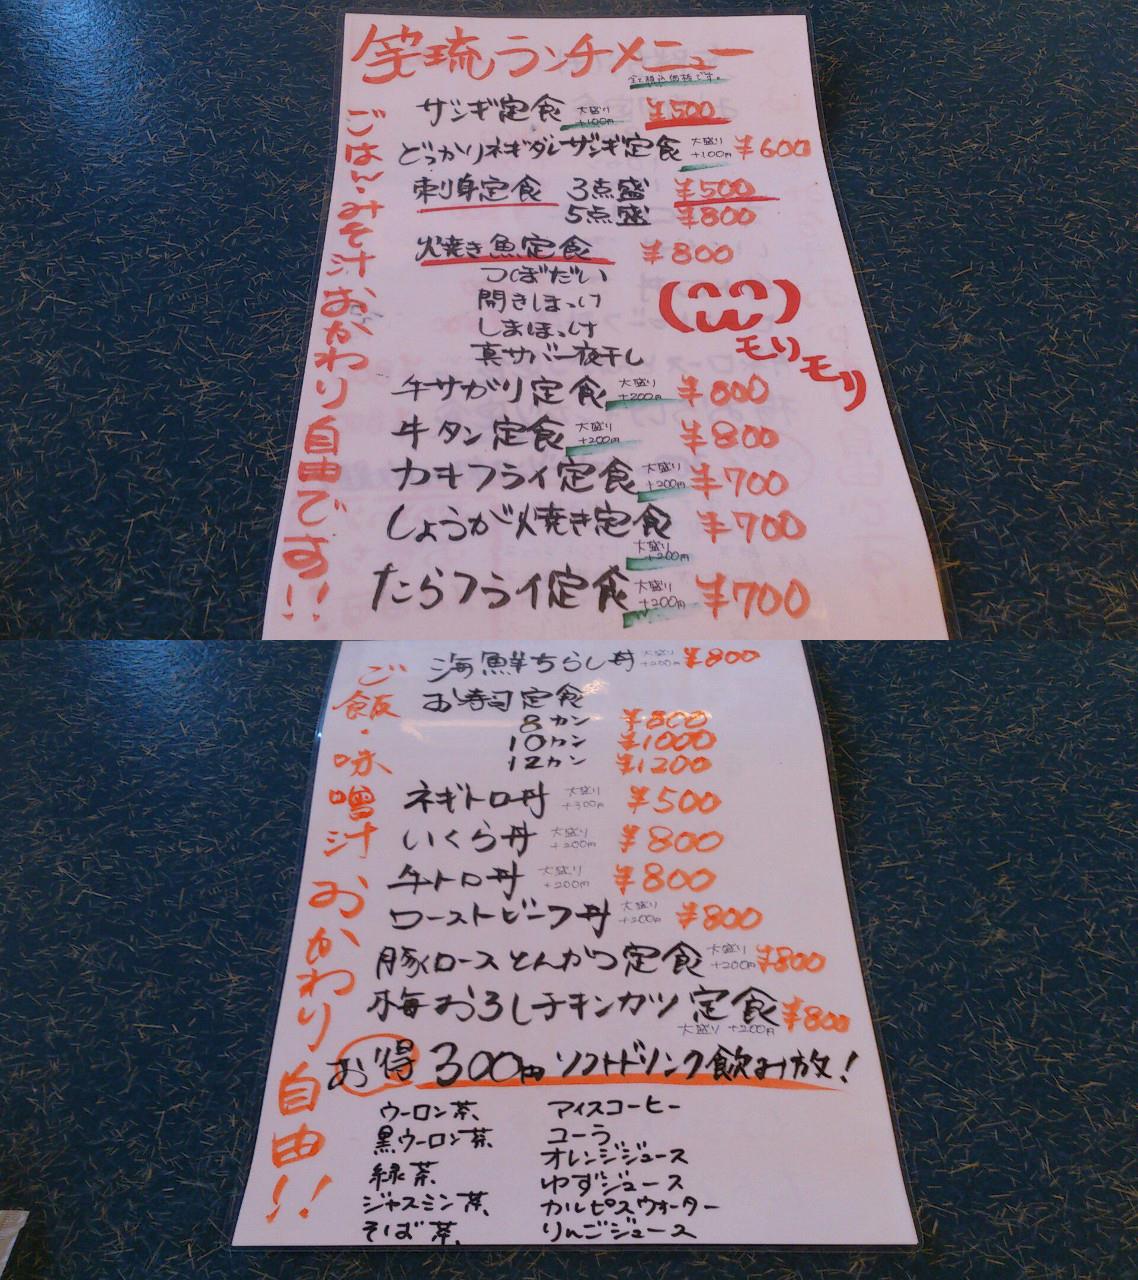 笑琉ランチメニュー
全て税込価格です。
ごはん・みそ汁おかわり自由です!!
ザンギ定食 大盛り+100円 ¥500
どっかりネギダレザンギ定食 大盛り+100円 ¥600
刺身定食 3点盛 ¥500
5点盛 ¥800
焼き魚定食 ¥800
つぼだい
開きほっけ
しまほっけ
真サバ一夜干し
モリモリ
牛サガリ定食 大盛り+200円 ¥800
牛タン定食 大盛り+200円 ¥800
カキフライ定食 大盛り+200円 ¥700
しょうが焼き定食 大盛り+200円 ¥700
たらフライ定食 大盛り+200円 ¥700
ご飯・味噌汁おかわり自由!!
海鮮ちらし丼 大盛り+200円 ¥800
お寿司定食
8カン ¥800
10カン ¥1000
12カン ¥1200
ネギトロ丼 大盛り+300円 ¥500
いくら丼 大盛り+200円 ¥800
牛トロ丼 大盛り+200円 ¥800
ローストビーフ丼 大盛り+200円 ¥800
豚ロースとんかつ定食 大盛り+200円 ¥800
梅おろしチキンカツ定食 大盛り+200円 ¥800
お得 300円ソフトドリンク飲み放!
ウーロン茶、 アイスコーヒー
黒ウーロン茶、 コーラ
緑茶、 オレンジジュース
ジャスミン茶、 ゆずジュース
そば茶、 カルピスウォーター
りんごジュース